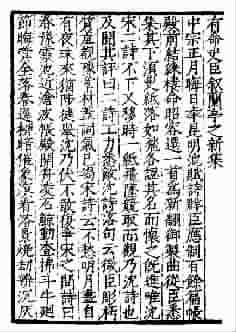 有命史臣叙蘭臺之新集
中宗正月晦日幸昆明池賦詩群臣應制百餘篇帳
殿前結綵樓命昭容選一首為新翻御製曲從臣悉
集其下須臾紙落如飛各認其名而懷之既進唯沈
宋二詩不下又移時一紙飛墜競取而觀乃沈詩也
及聞其評曰二詩工力悉敵沈詩落句云微臣彫朽
質羞覩豫章材蓋詞氣已竭宋詩云不愁明月盡自
有夜珠來猶陟健舉沈乃伏不敢復爭宋之問詩曰
春豫靈池近滄波帳殿開舟凌石鯨動查拂斗牛迴
節晦蓂全落春遲柳暗催象溟看浴景燒劫辨沉灰